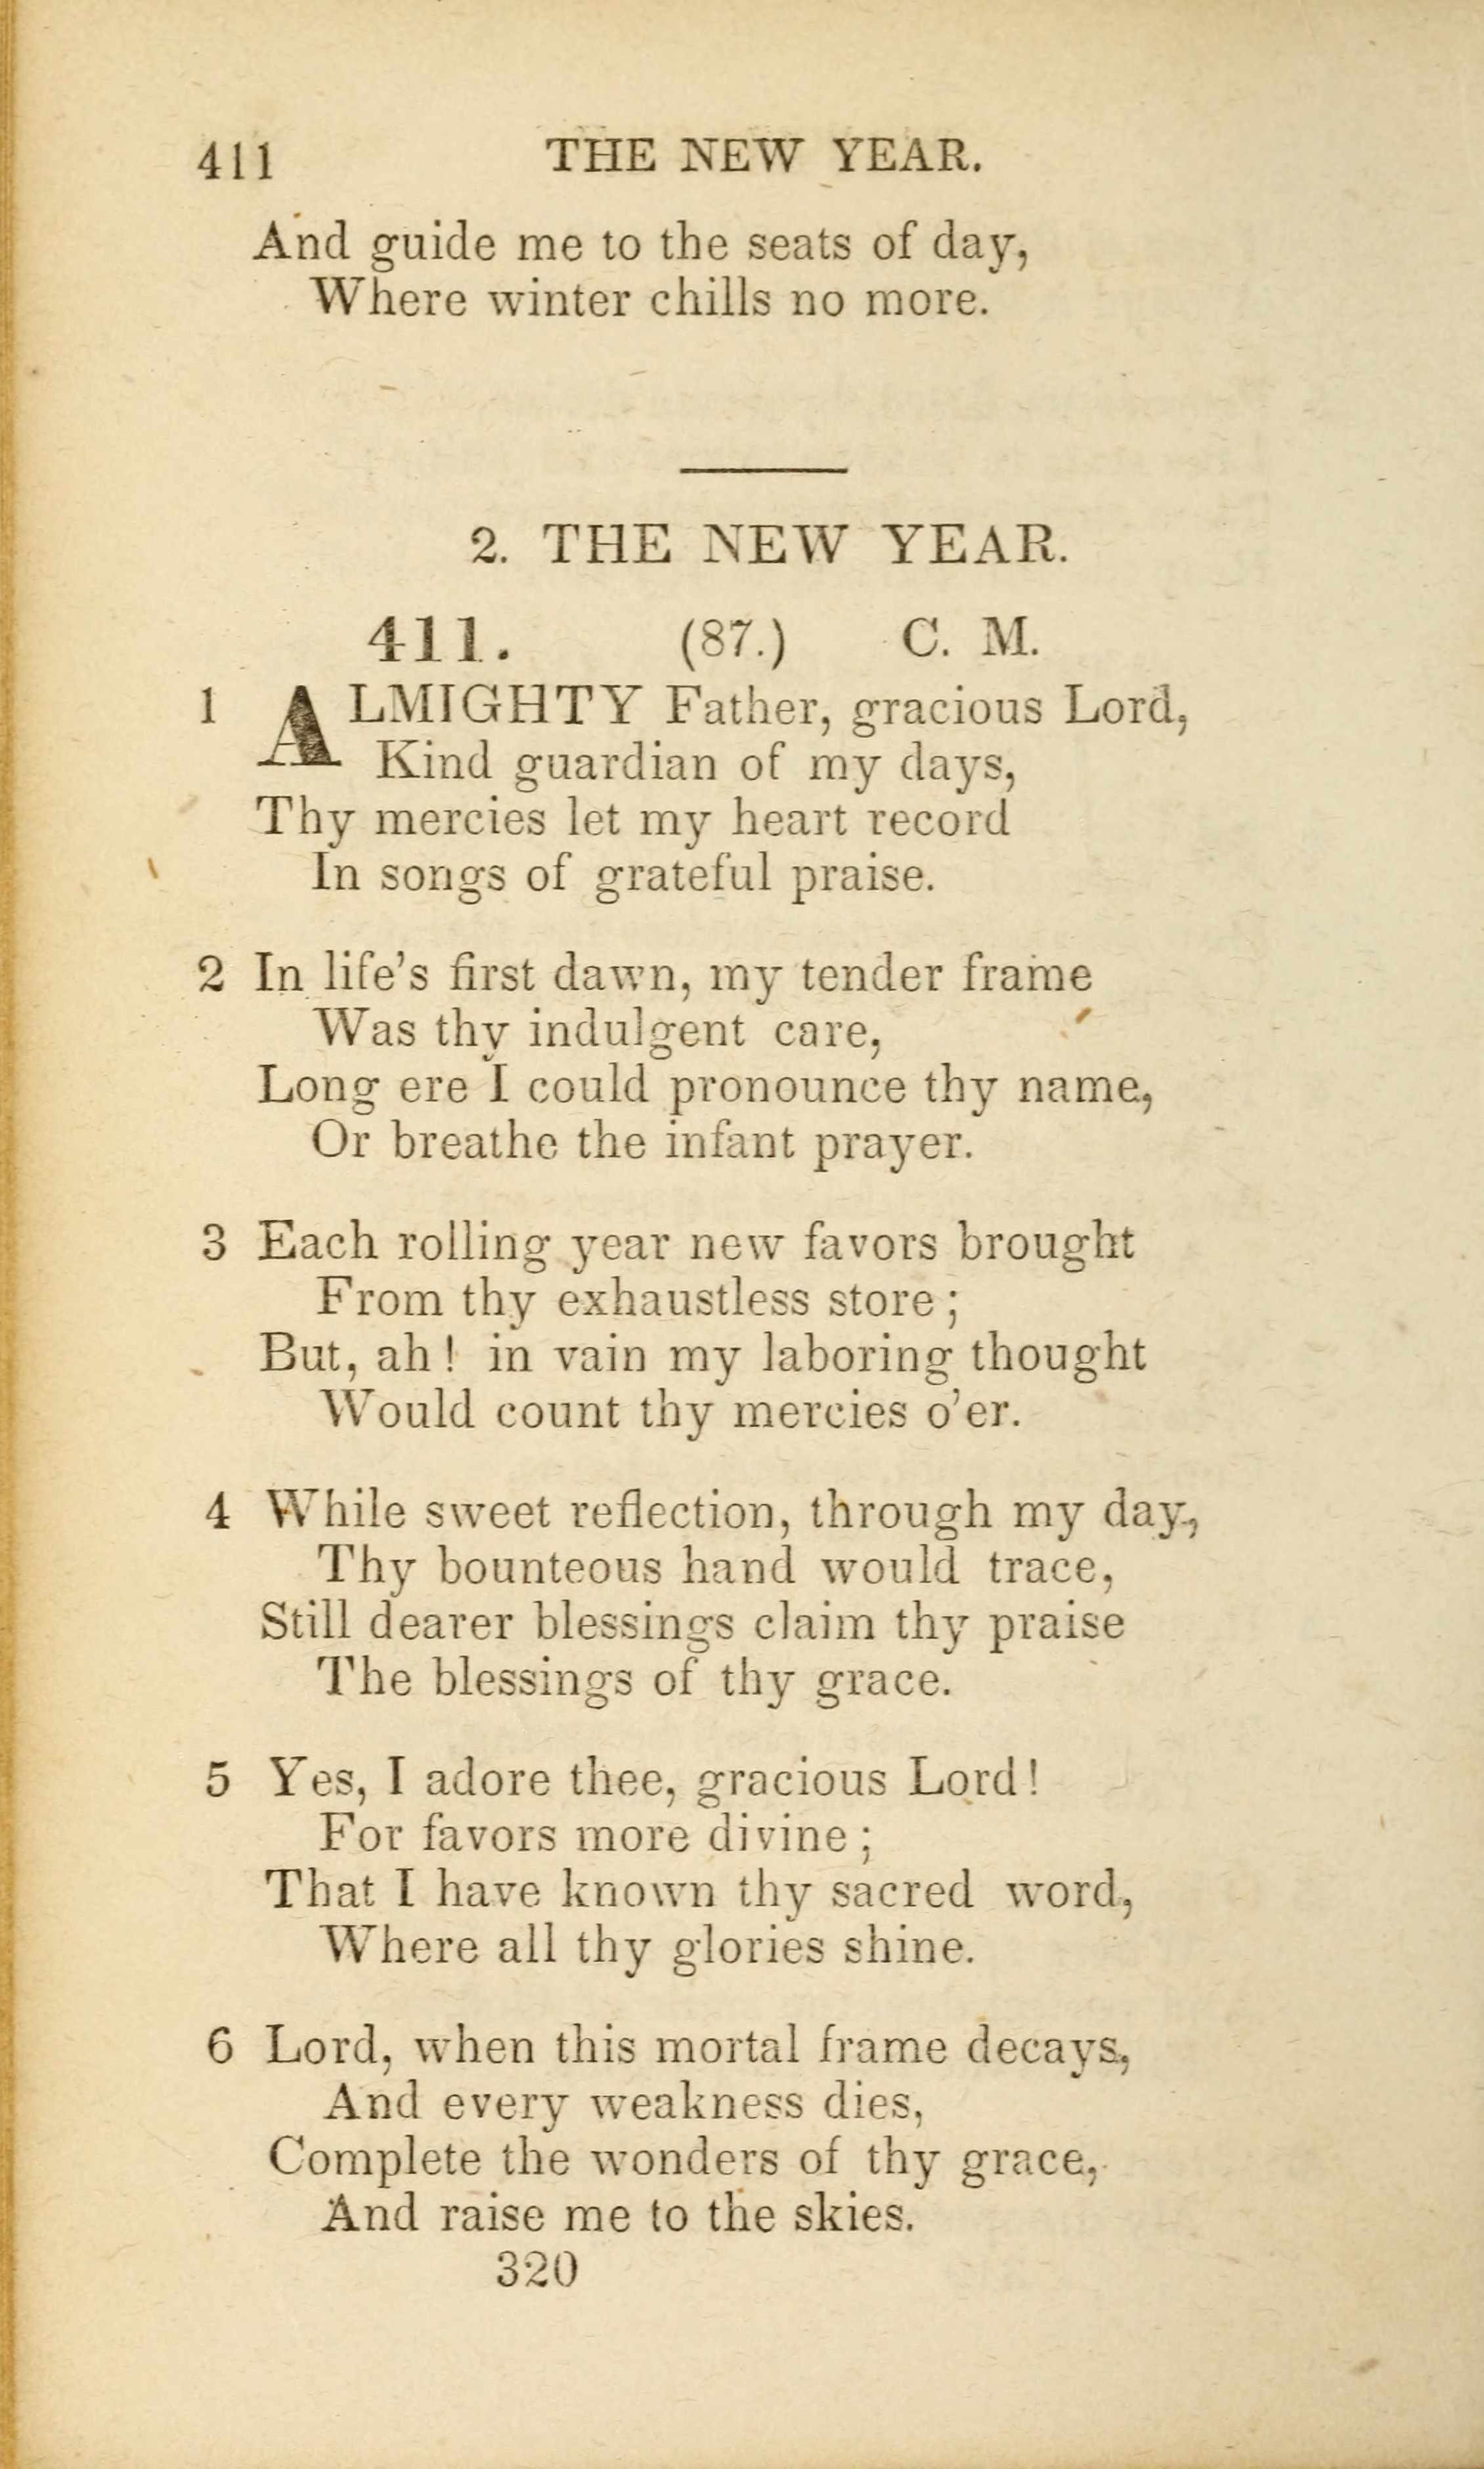 411 THE NEW YEAR.
And guide me to the seats of day,
Where winter chills no more.
2. THE NEW YEAR.
411. (87.) C. M.
1 ALMIGHTY Father, gracious Lord,
Kind guardian of my days,
Thy mercies let my heart record
In songs of grateful praise.
2 In life's first dawn, my tender frame
Was thy indulgent care,
Long ere I could pronounce thy name,
Or breathe the infant prayer.
3 Each rolling year new favors brought
From thy exhaustless store;
But, ah! in vain my laboring thought
Would count thy mercies o'er.
4 While sweet reflection, through my day,
Thy bounteous hand would trace,
Still dearer blessings claim thy praise
The blessings of thy grace.
5 Yes, I adore thee, gracious Lord!
For favors more divine;
That I have known thy sacred word,
Where all thy glories shine.
6 Lord, when this mortal frame decays,
And every weakness dies,
Complete the wonders of thy grace,
And raise me to the skies.
320